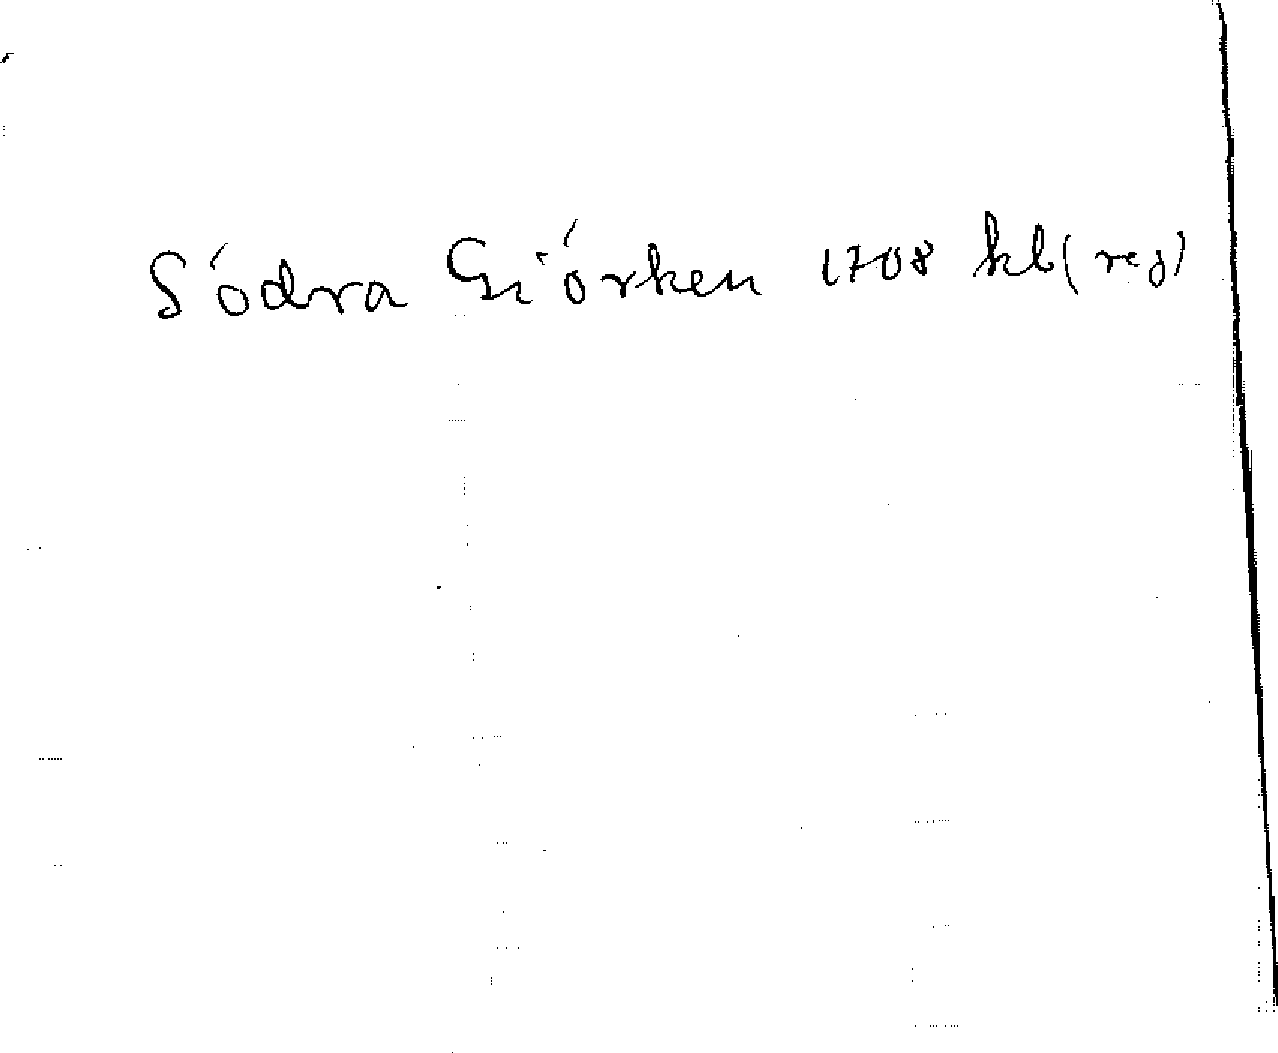 Södra Giörken 1708 kb (reg)